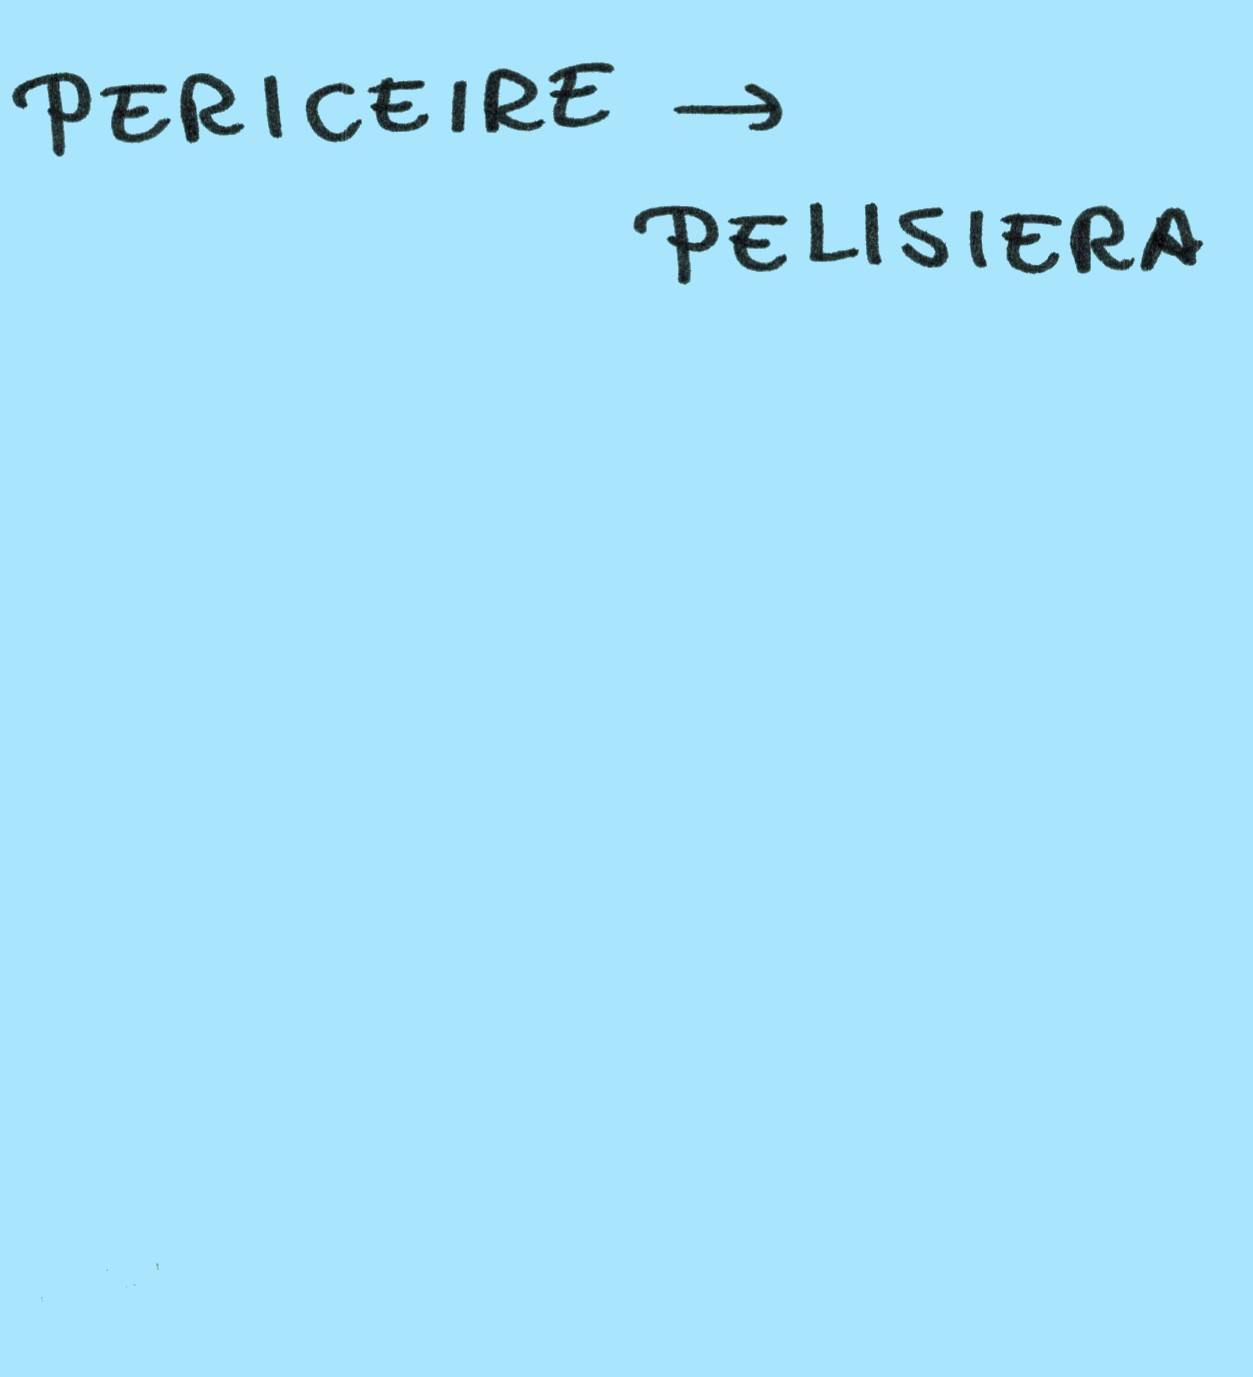 PERICEIRE →
PELISIERA